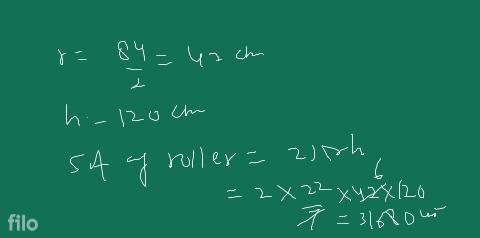 r = 84/2 = 42 cm
h = 120 cm
SA of roller = 2πrh
= 2 × 22/7 × 42 × 120
6
= 31680 cm²
filo